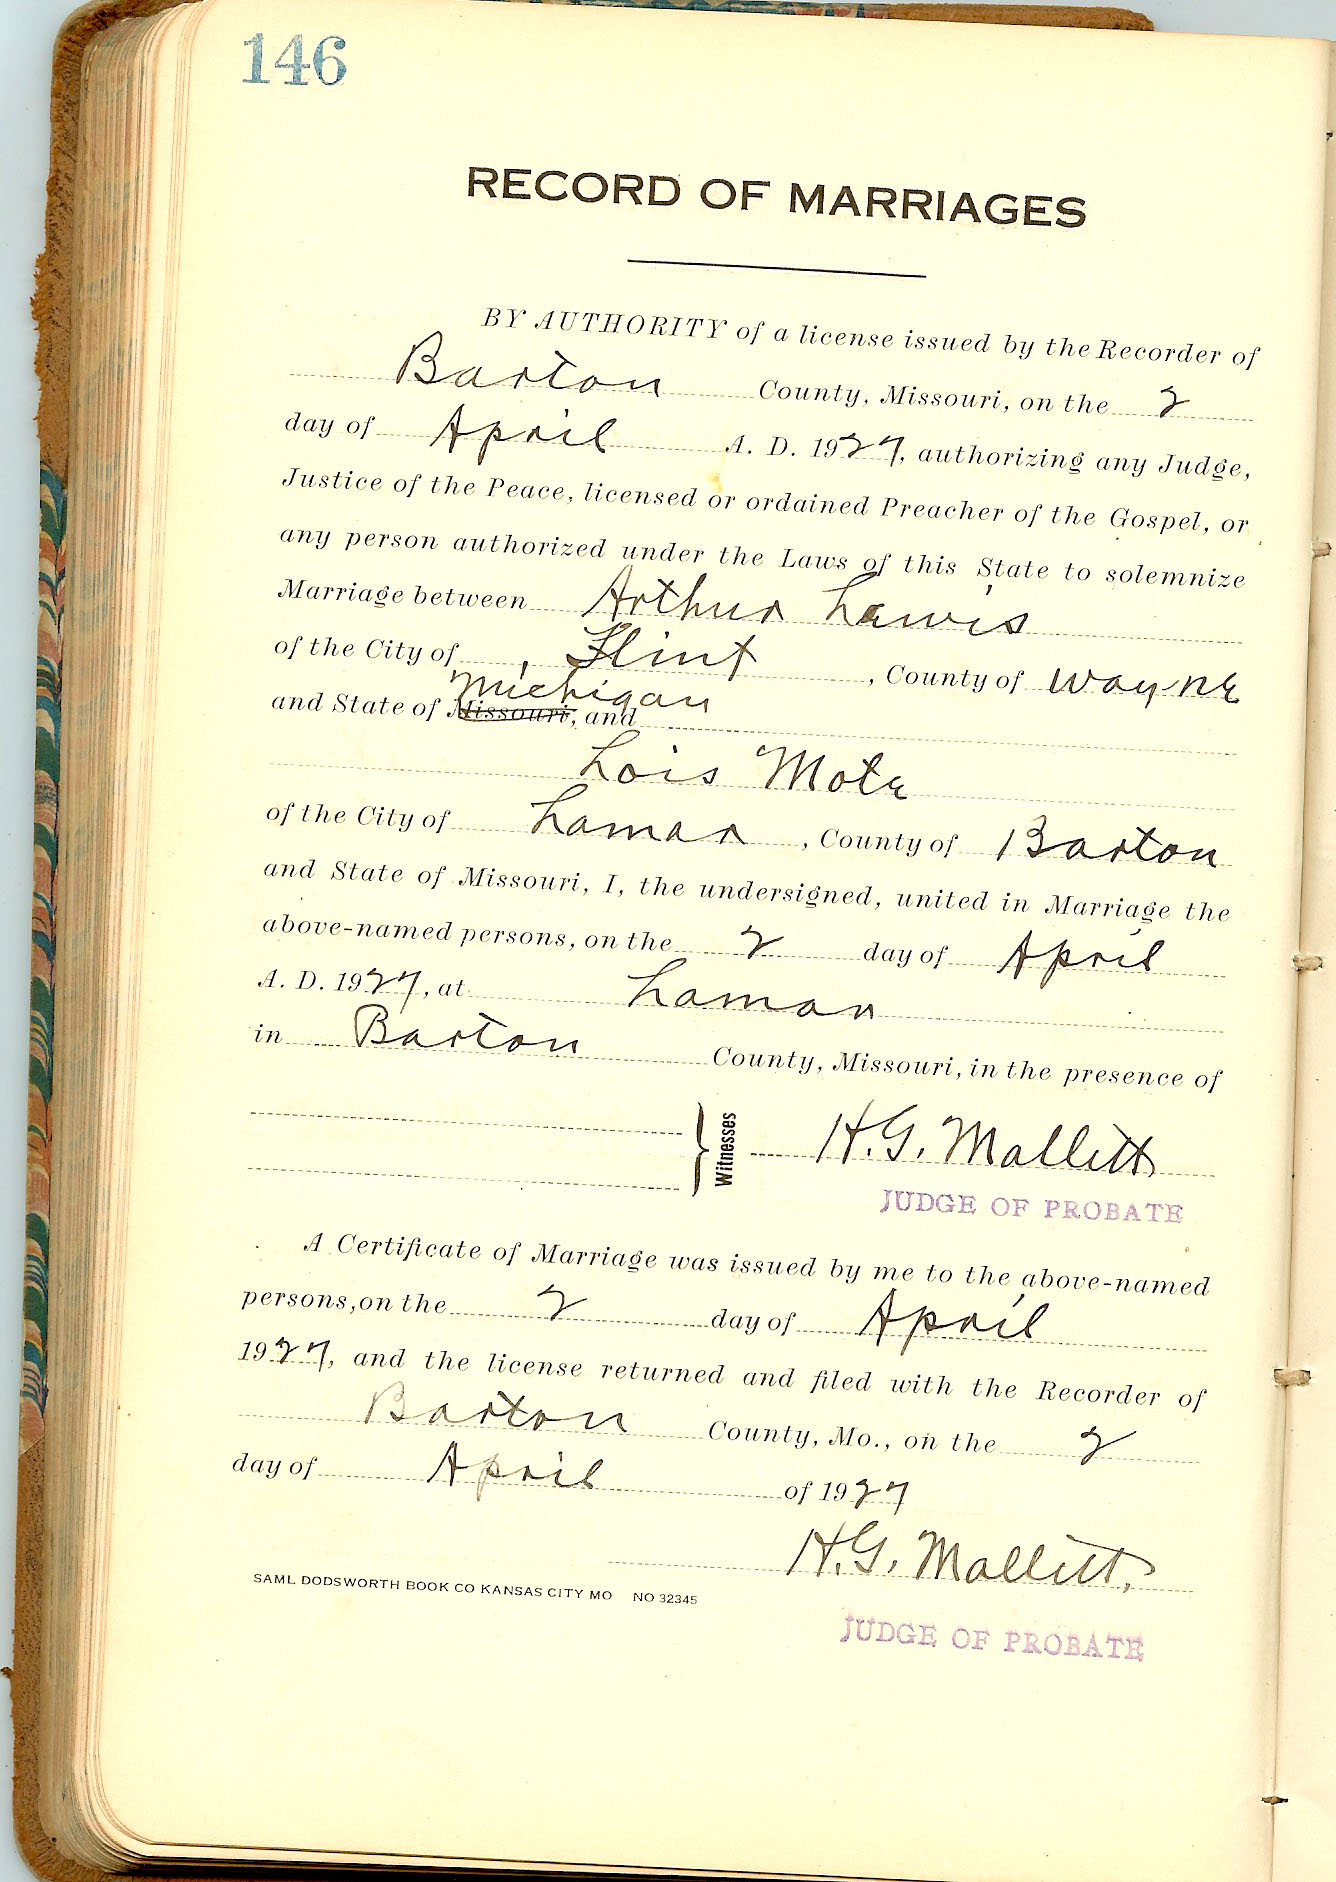 146
RECORD OF MARRIAGES
BY AUTHORITY of a license issued by the Recorder of
Barton County, Missouri, on the 2
day of April A. D. 1927, authorizing any Judge,
Justice of the Peace, licensed or ordained Preacher of the Gospel, or
any person authorized under the Laws of this State to solemnize
Marriage between Arthur Lewis
of the City of Flint, County of Wayne
and State of Missouri, and Michigan
Lois Mote
of the City of Lamar, County of Barton
and State of Missouri, I, the undersigned, united in Marriage the
above-named persons, on the 2 day of April
A. D. 1927, at Lamar
in Barton County, Missouri, in the presence of
Witnesses H.G. Mallitt
JUDGE OF PROBATE
A Certificate of Marriage was issued by me to the above-named
persons, on the 2 day of April
1927, and the license returned and filed with the Recorder of
Barton County, Mo., on the 2
day of April of 1927
H.G. Mallitt.
SAML DODSWORTH BOOK CO KANSAS CITY MO NO 32345
JUDGE OF PROBATE